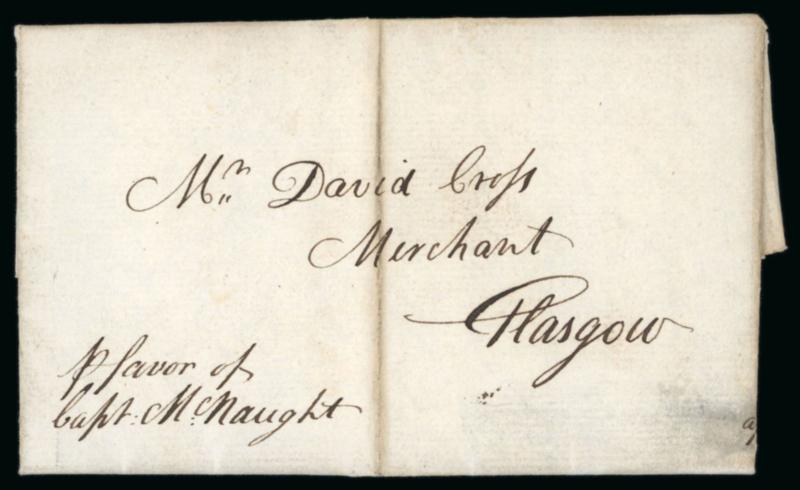 Mr. David Croſs
Merchant
Glasgow
p favor of
Capt: Mc Naught